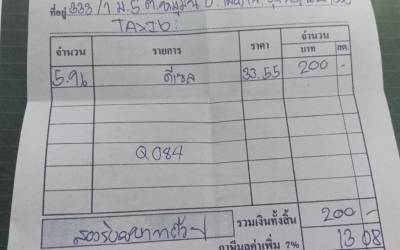 ที่อยู่ 333/1 ม.5 ต.
TAXID:
จำนวน รายการ ราคา จำนวน
บาท สต.
5.96 ดีเซล 33.55 200 -
Q084
สองร้อยบาทถ้วน รวมเงินทั้งสิ้น 200 -
ภาษีมูลค่าเพิ่ม 7% 13 08